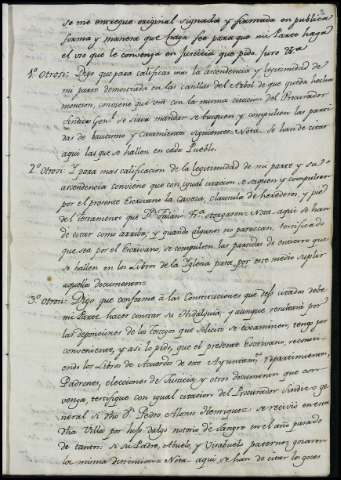 se me entregue original signada y firmada en publica
forma y manera que haga fée para que mi Parte haga
el uso que le convenga en Justicia que pido juro &a
1º Otrosi: Digo que para calificar mas la ascendencia y legitimidad de
mi parte demostrada en las casillas del Arbol de que queda hecha
mencion, conviene que con la misma citacion del Procurador
Sindico Genl. se sirva mandar se busquen y compulsen las parti-
das de bautismo y casamiento siguientes Nota. Se han de citar
aqui las que se hallen en cada Pueblo.
2º Otrosi: Y para mas calificacion de la legitimidad de mi parte y su
ascendencia conviene que con igual citacion se saquen y compulsen
por el presente Escrivano la caveza, clausula de herederos, y pie
del testamento que Dn. Fulano Fª otorgaron Nota aqui se han
de citar como arriba, y quando algunos no parezcan, certificado
que sea por el Escrivano, se compulsen las partidas de entierro que
se hallen en los Libros de la Iglesia para por este medio suplir
aquellos documentos.
3º Otrosi: Digo que conforme à las Constituciones que dejo citadas debe
mi Parte hacer constar su Hidalguia, y aunque resultará por
las deposiciones de los testigos que solicito se examinen, tengo por
conveniente, y asi lo pido, que el presente Escrivano, recono-
ciendo los Libros de Acuerdo de este Ayuntamto. repartimientos,
Padrones, elecciones de Justicia y otros documentos que con-
venga, certifique con igual citacion del Procurador Sindico ge-
neral si dho Dn. Pedro Alonso Domiguez se recivió en esta
dha Villa por hijo dalgo notorio de sangre en el año pasado
de tantos: si su Padre, Abuelo, y Visabuelo paternos gozaron
la misma distincion Nota aqui se han de citar los goces